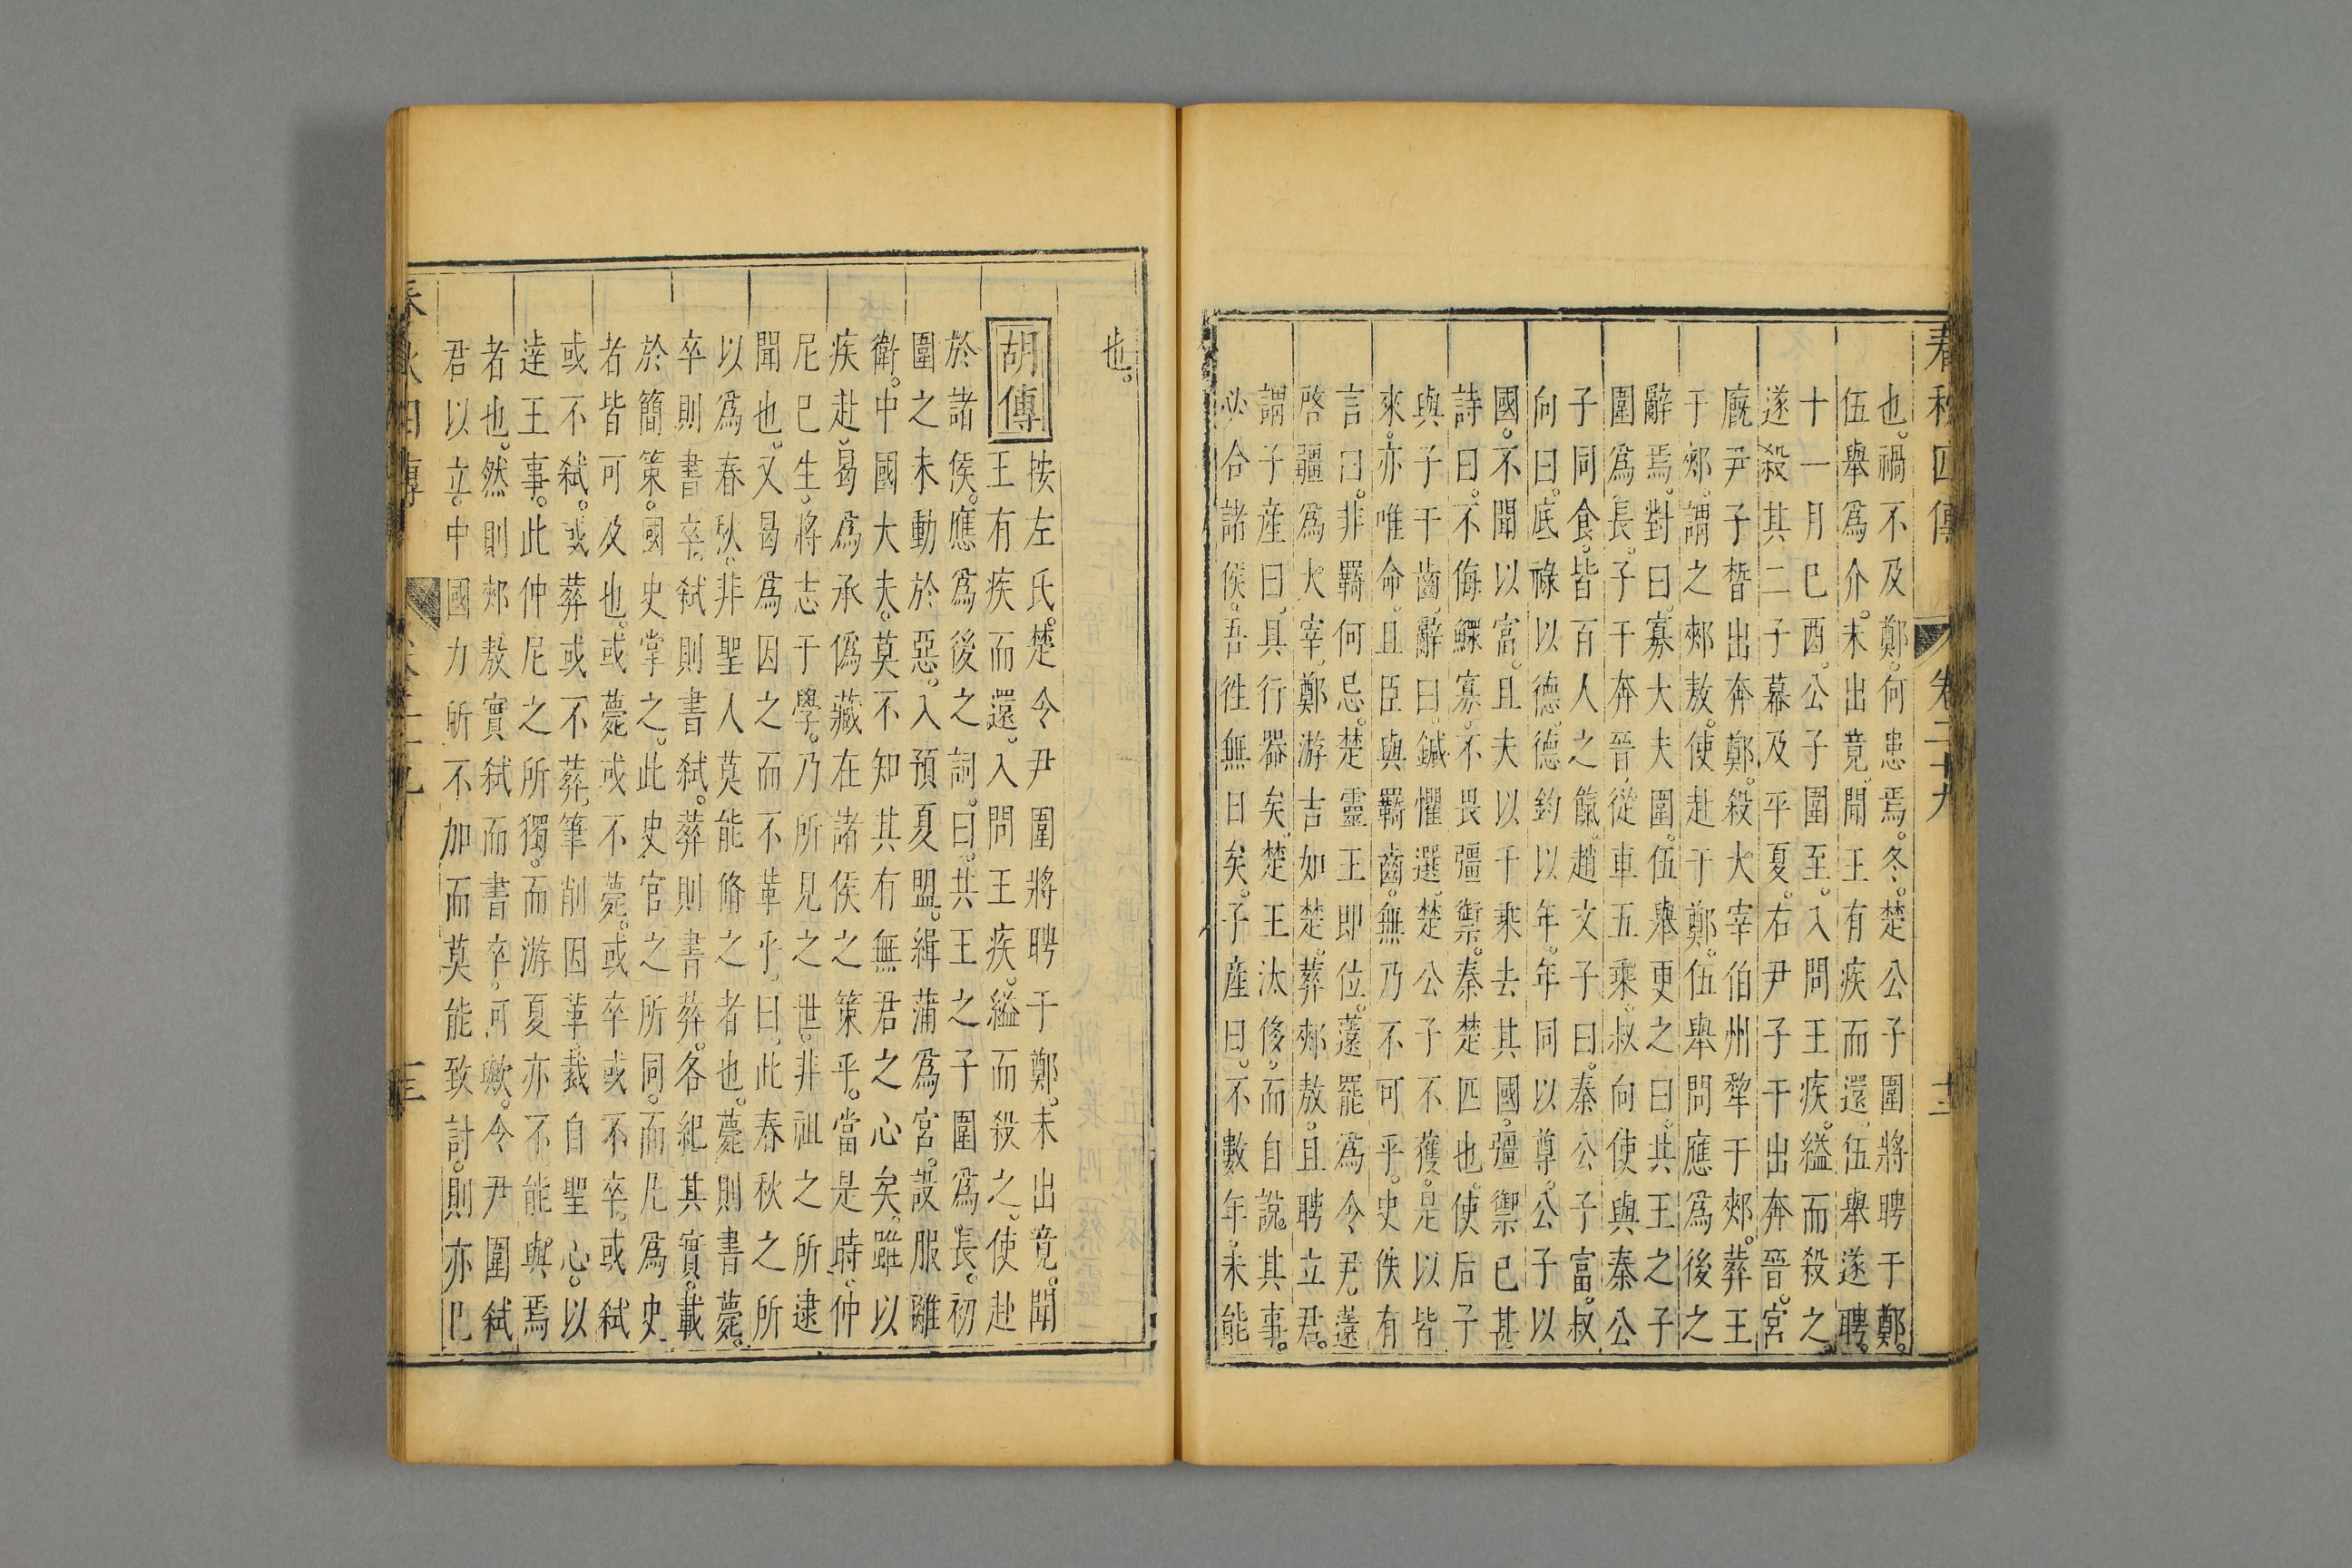 春秋四傳 卷二十九 十二
也。禍不及鄭。何患焉。冬。楚公子圍將聘于鄭。
伍舉爲介。未出竟。聞王有疾而還。伍舉遂聘。
十一月己酉。公子圍至。入問王疾。縊而殺之。
遂殺其二子幕及平夏。右尹子干出奔晉。宮
廐尹子晳出奔鄭。殺大宰伯州犂于郟。葬王
于郟。謂之郟敖。使赴于鄭。伍舉問應爲後之
辭焉。對曰。寡大夫圍。伍舉更之曰。共王之子
圍爲長。子干奔晉。從車五乘。叔向使與秦公
子同食。皆百人之餼。趙文子曰。秦公子富。叔
向曰。底祿以德。德鈞以年。年同以尊。公子以
國。不聞以富。且夫以千乘去其國。彊禦已甚
詩曰。不侮鰥寡。不畏彊禦。秦楚匹也。使后子
與子干齒。辭曰。鍼懼選。楚公子不獲。是以皆
來。亦唯命。且臣與羇齒。無乃不可乎。史佚有
言曰。非羇何忌。楚靈王即位。薳罷爲令尹。薳
啓彊爲大宰。鄭游吉如楚。葬郟敖。且聘立君。
謂子產曰。具行器矣。楚王汰侈。而自說其事。
必合諸侯。吾往無日矣。子產曰。不數年。未能
也。
胡傳 按左氏。楚令尹圍將聘于鄭。未出竟。聞
王有疾而還。入問王疾。縊而殺之。使赴
於諸侯。應爲後之詞。曰。共王之子圍爲長。初
圍之未動於惡。入預夏盟。緝蒲爲宮。設服離
衛。中國大夫。莫不知其有無君之心矣。雖以
疾赴。曷爲承僞藏在諸侯之策乎。當是時。仲
尼巳生。將志于學。乃所見之世。非祖之所逮
聞也。又曷爲因之而不革乎。曰。此春秋之所
以爲春秋。非聖人莫能脩之者也。薨則書薨。
卒則書卒。弑則書弑。葬則書葬。各紀其實。載
於簡策。國史掌之。此史官之所同。而凡爲史
者皆可及也。或薨或不薨。或卒或不卒。或弑
或不弑。或葬或不葬。筆削因革。裁自聖心。以
逹王事。此仲尼之所獨。而游夏亦不能與焉
者也。然則郟敖實弑而書卒。何歟。令尹圍弑
君以立。中國力所不加而莫能致討。則亦巳
春秋四傳 卷二十九 十三